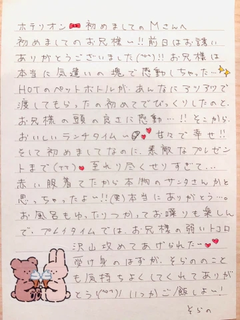 ホテリオン🎀初めましてのMさんへ
初めましてのお兄様〜!!前日はお誘い
ありがとうございました(^^)!!お兄様は
本当に気遣いの塊で感動しちゃった…✨
HOTのペットボトルが、あんなにアツアツで
渡してもらったの初めてでびっくりしたので、
お兄様の頭の良さに感動…!!そこから
おいしいランチタイム〜💕甘々で幸せ!!
そして初めましてなのに、素敵なプレゼン
トまで(^^)❤至れり尽くせりすぎて…
赤い服着てたから本物のサンタさんかと
思っちゃったよー!!(笑)本当にありがとう…。
お風呂もゆったりつかってお喋りも楽しん
で、プレイタイムでは、お兄様の弱いトコロ
沢山攻めてあげられた〜💗
受け身のはずが、そらののこと
も気持ちよくしてくれてありが
とう(^^)!!いつかご飯しよー!
そらの